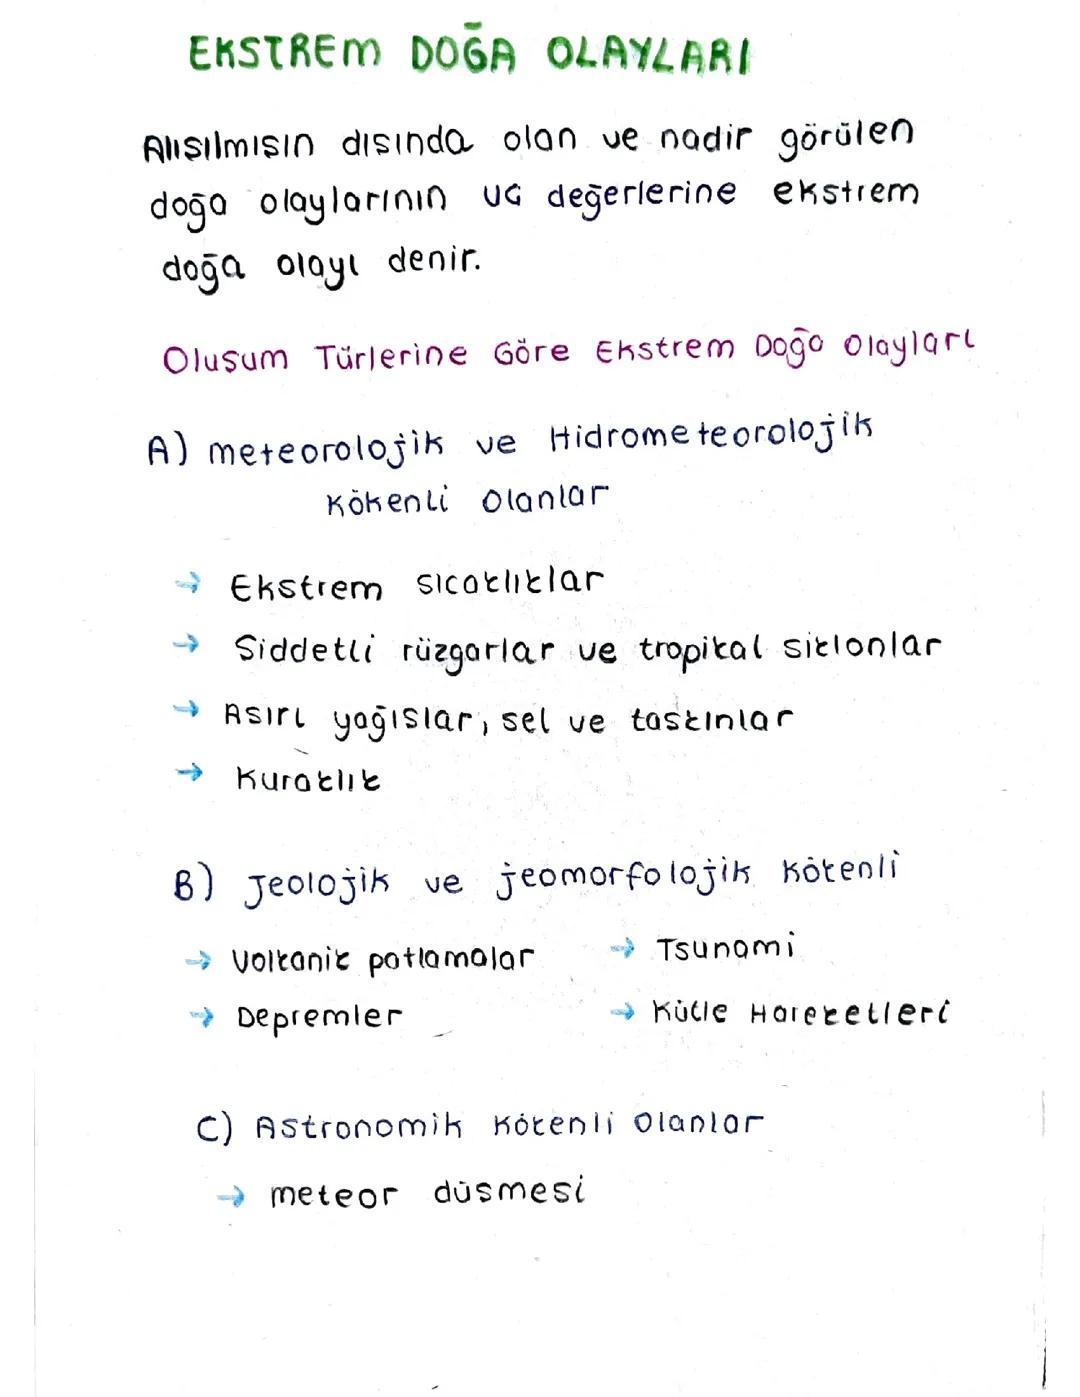 EKSTREM DOĞA OLAYLARI
Alısılmısın dısında olan ve nadir görülen
doğa olaylarının uc değerlerine ekstrem
doğa olayı denir.
Olusum Türlerine Göre Ekstrem Doğa Olayları
A) meteorolojik ve Hidrometeorolojik
Kökenli Olanlar
→ Ekstrem sıcaklıklar
→ Siddetli rüzgarlar ve tropikal siklonlar
→ Asırı yağıslar, sel ve taskınlar
→ Kuraklık
B) Jeolojik ve jeomorfolojik Kökenli
→ Volkanik patlamalar → Tsunami
→ Depremler → Kütle Hareketleri
C) Astronomik Kökenli Olanlar
→ meteor düsmesi